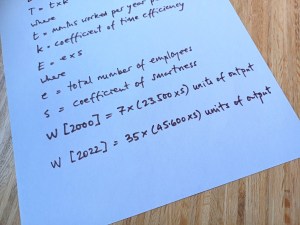 T = t x k
where
t = months worked per year p
k = coefficient of time efficiency
E = e x s
where
e = total number of employees
s = coefficient of smartness
W [2000] = 7 x (23.500 x s) units of output
W [2022] = 35 x (45.600 x s) units of output